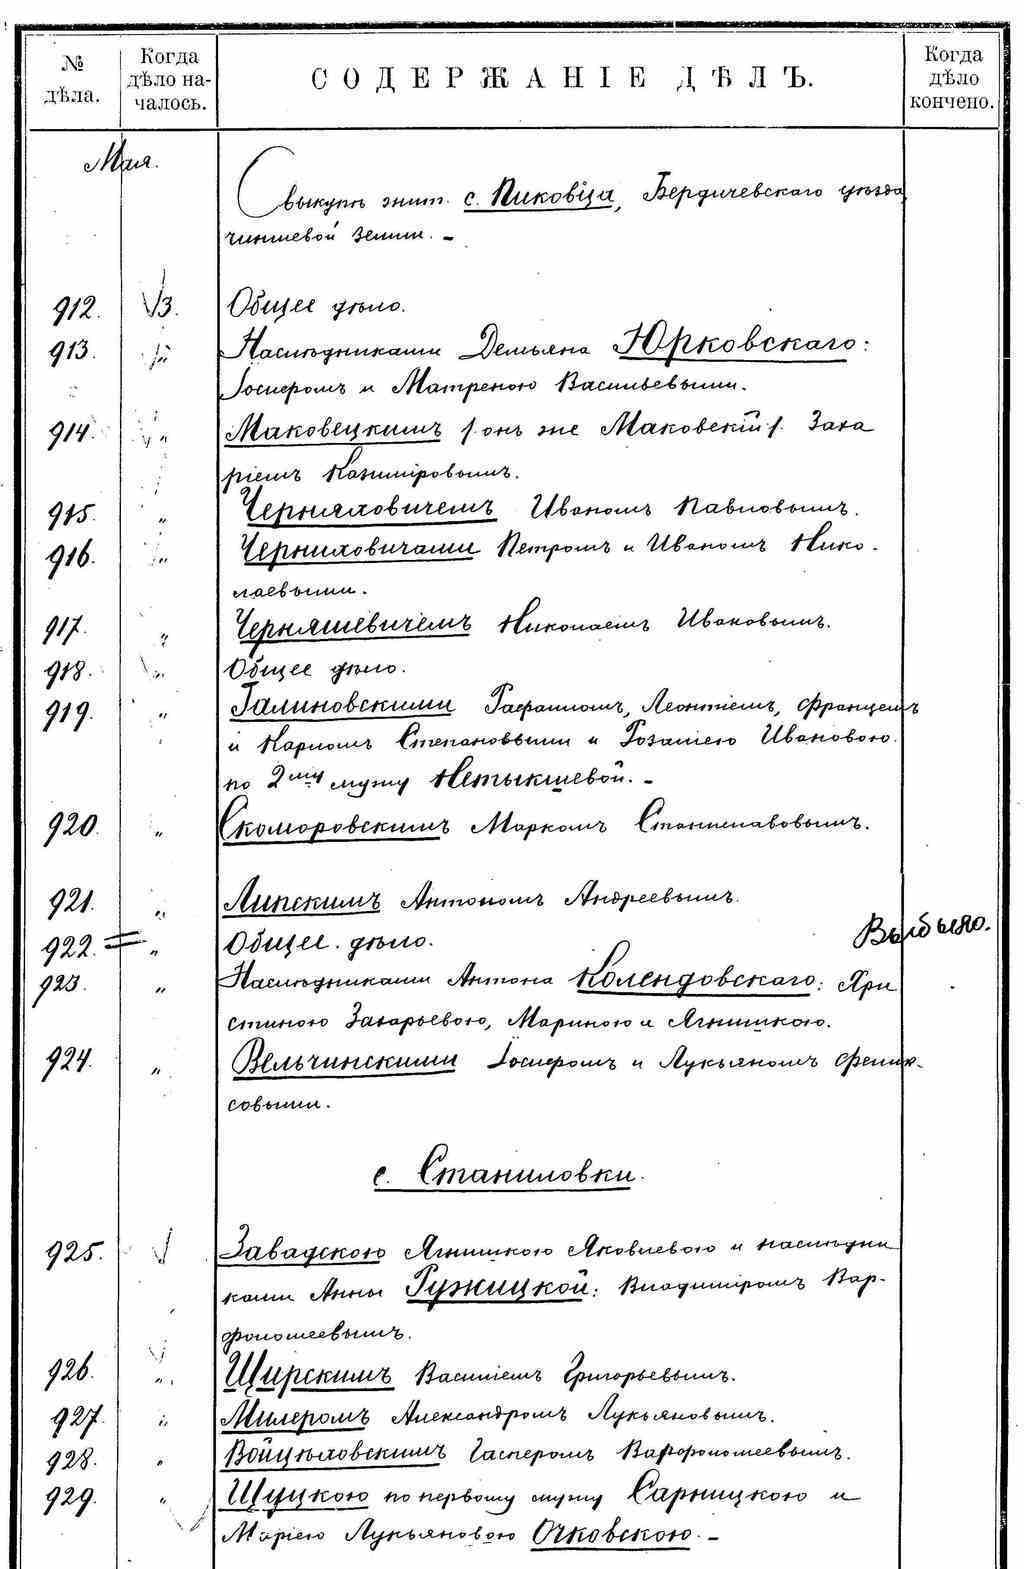 № дѣла. Когда дѣло началось. СОДЕРЖАНІЕ ДѢЛЪ. Когда дѣло кончено.
Мая.
О выкупѣ жит. с. Пиковца, Бердичевскаго уѣзда
чиншевой земли. –
912. 3. Общее дѣло.
913. Наслѣдниками Демьяна Юрковскаго:
Іосифомъ и Матреною Васильевыми.
914. " Маковецкимъ /: онъ же Маковскій :/ Заха
ріемъ Казиміровымъ.
915. " Черняховичемъ Иваномъ Павловымъ.
916. " Черниховичами Петромъ и Иваномъ Нико-
лаевыми.
917. " Черняшевичемъ Николаемъ Ивановымъ.
918. " Общее дѣло.
919. " Галиновскими Рафаиломъ, Леонтіемъ, Францемъ
и Карломъ Степановыми и Розаліею Ивановою
по 2му мужу Нетыкшевой. –
920. " Скоморовскимъ Маркомъ Станиславовымъ.
921. " Липскимъ Антономъ Андреевымъ.
922. " Общее дѣло. Выбыло.
923. " Наслѣдниками Антона Колендовскаго: Хри
стиною Захарьевою, Мариною и Агнишкою.
924. " Вельчинскими Іосифомъ и Лукьяномъ Фелик-
совыми.
с. Станиловки.
925. Завадскою Агнишкою Яковлевою и наслѣдни
ками Анны Ружицкой: Владиміромъ Вар-
фоломеевымъ.
926. " Щирскимъ Василіемъ Григорьевымъ.
927. " Милеромъ Александромъ Лукьяновымъ.
928. " Войцѣховскимъ Гасперомъ Варфоломеевымъ.
929. " Шуцкою по первому мужу Сарницкою и
Маріею Лукьяновою Очковскою. –